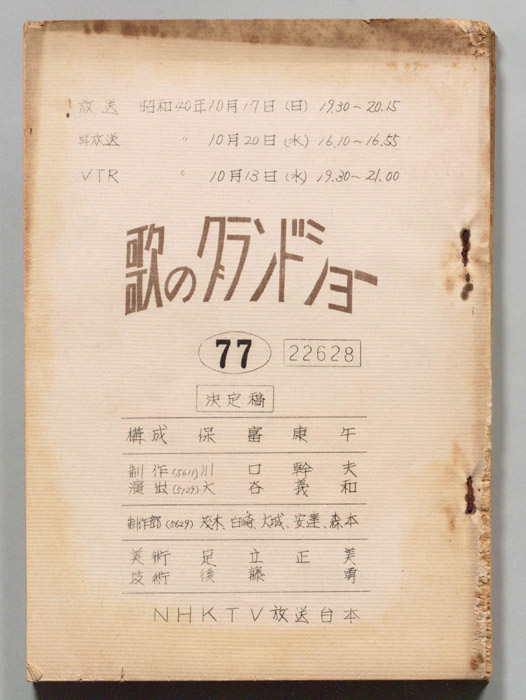 放送 昭和40年10月17日(日) 19.30~20.15
再放送 〃 10月20日(水) 16.10~16.55
VTR 〃 10月13日(水) 19.30~21.00
歌のグランドショー
77 22628
決定稿
構成 保富康午
制作(5611)川口幹夫
演出(5129)大谷義和
制作部(5629) 茨木、白崎、大城、安達、森本
美術 足立正美
技術 後藤 勇
NHKTV放送台本